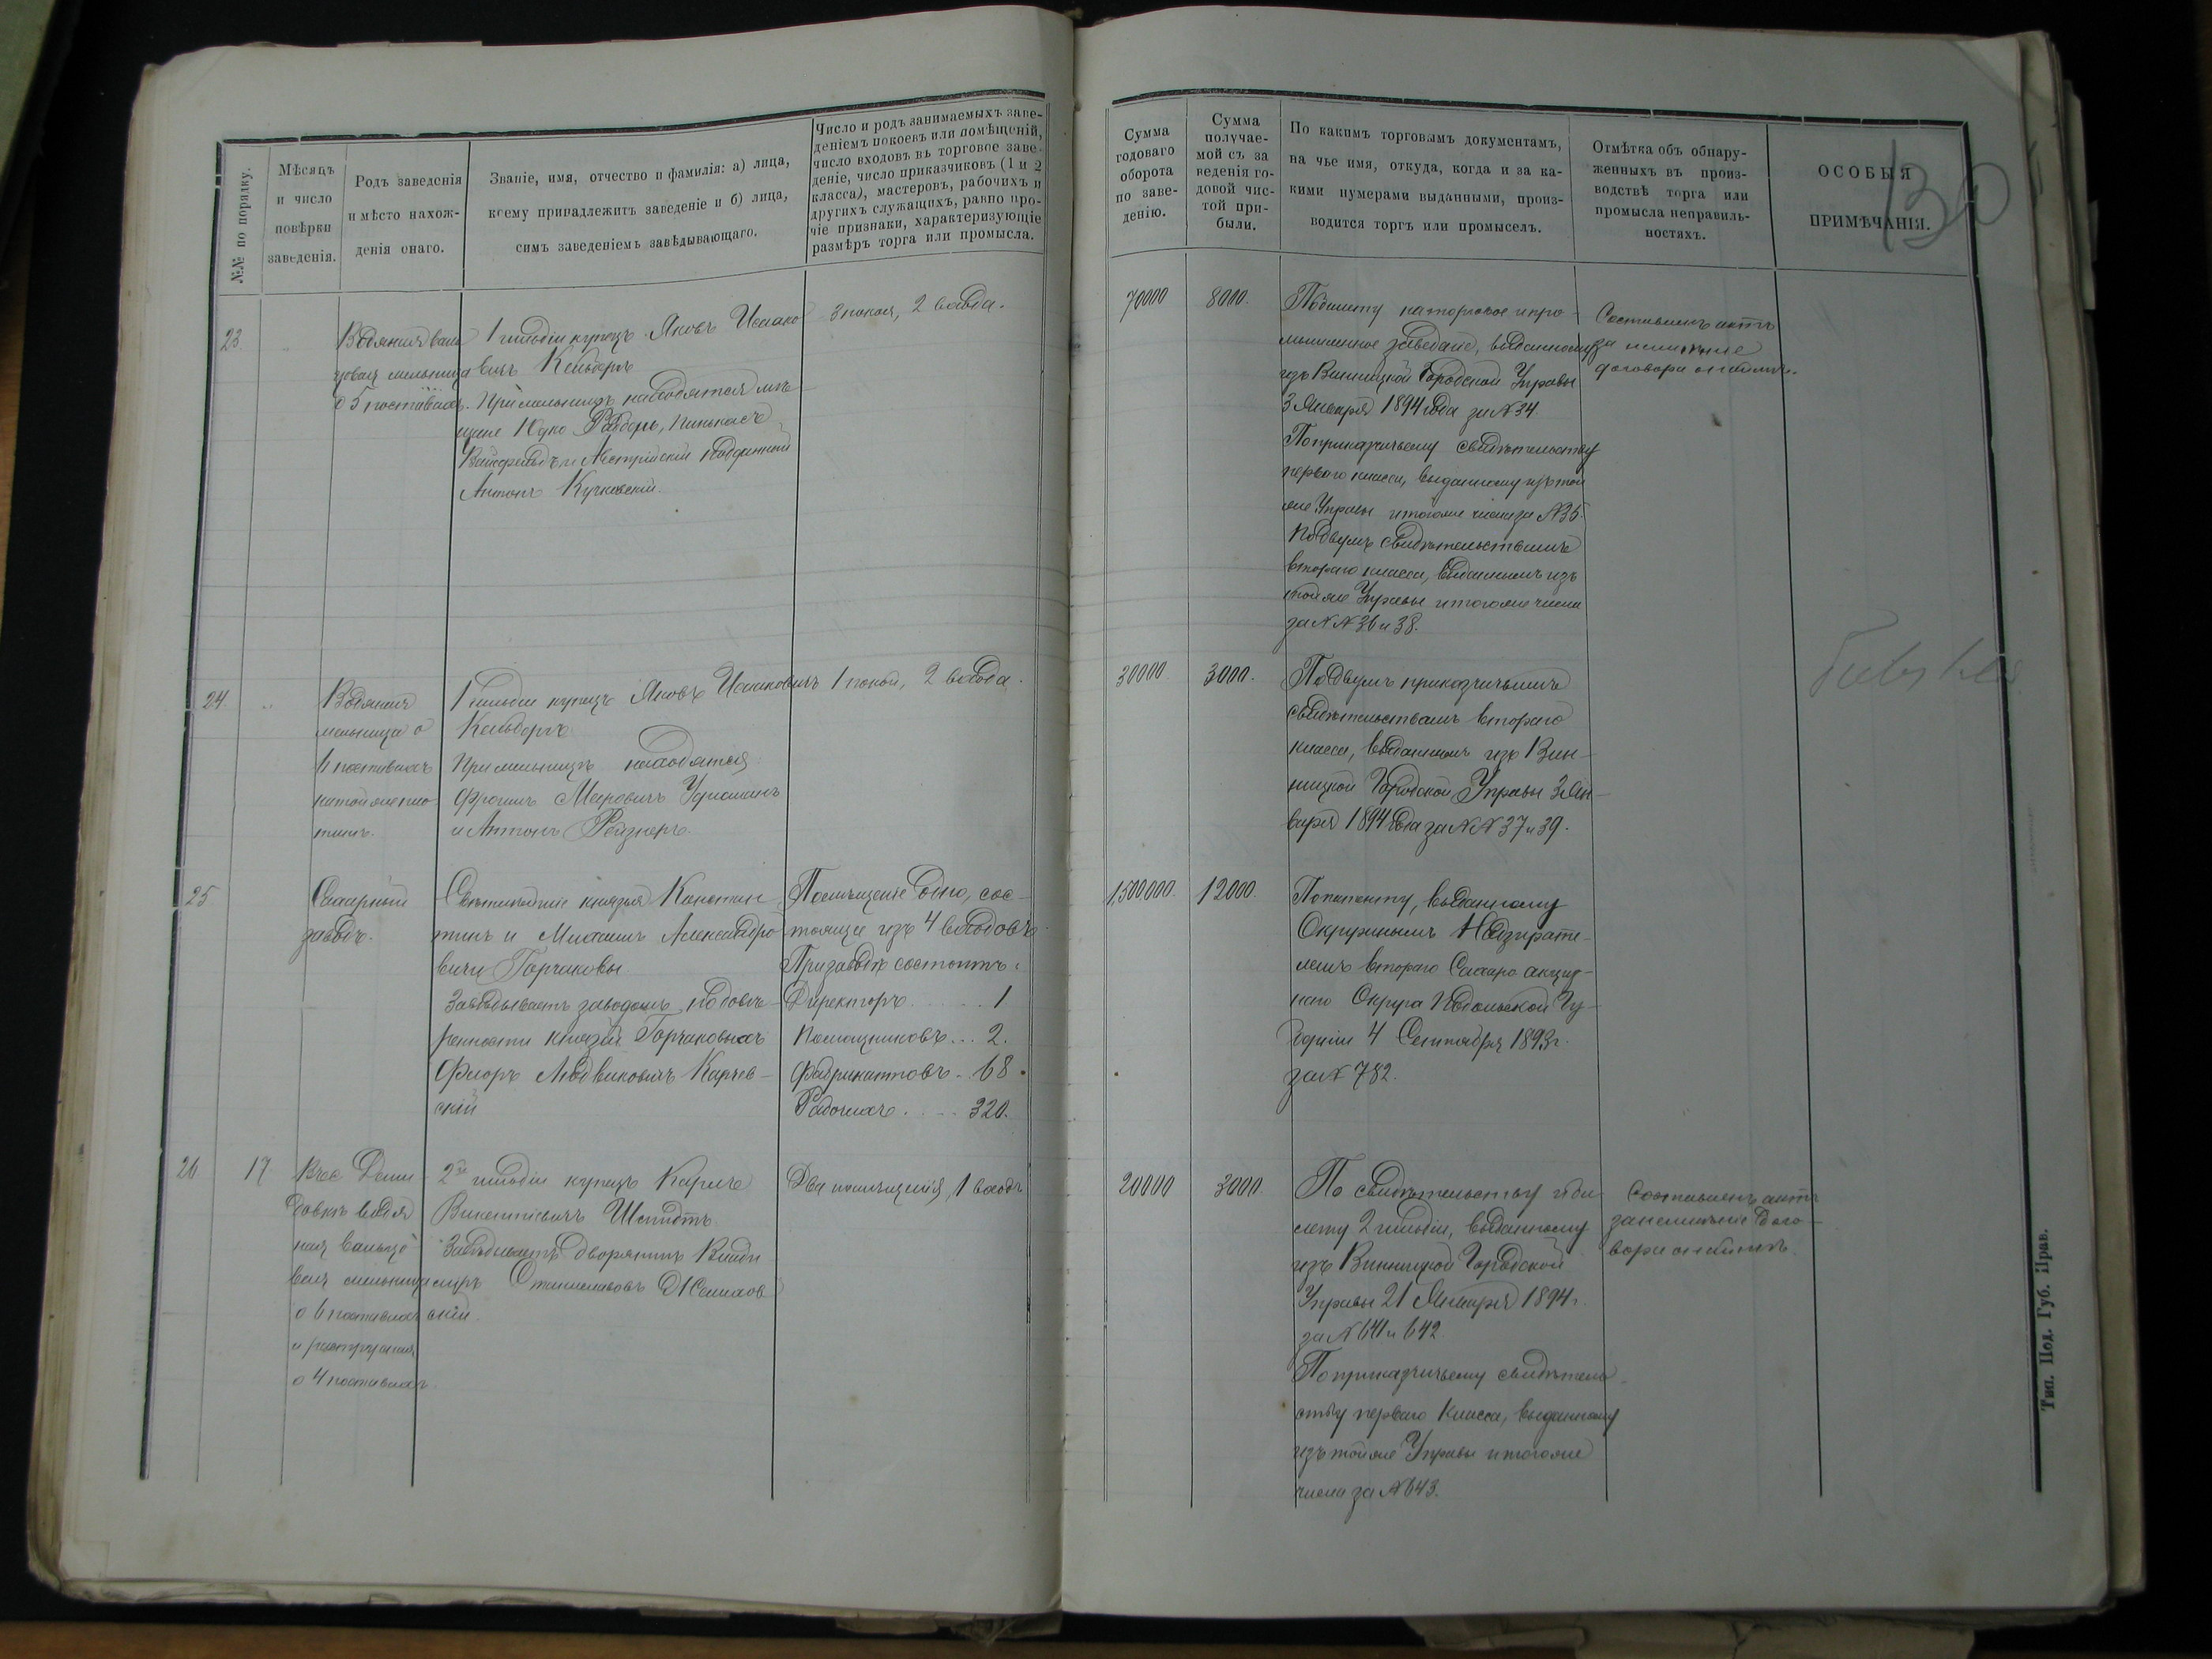 №№ по порядку.
Мѣсяцъ
и число
повѣрки
заведенія.
Родъ заведенія
и мѣсто нахож-
денія онаго.
Званіе, имя, отчество и фамилія: а) лица,
коему принадлежитъ заведеніе и б) лица,
симъ заведеніемъ завѣдывающаго.
Число и родъ занимаемыхъ заве-
деніемъ покоевъ или помѣщеній,
число входовъ въ торговое заве-
деніе, число приказчиковъ (1 и 2
класса), мастеровъ, рабочихъ и
другихъ служащихъ, равно про-
чіе признаки, характеризующіе
размѣръ торга или промысла.
Сумма
годоваго
оборота
по заве-
денію.
Сумма
получае-
мой съ за
веденія го-
довой чис-
той при-
были.
По какимъ торговымъ документамъ,
на чье имя, откуда, когда и за ка-
кими нумерами выданными, произ-
водится торгъ или промыселъ.
Отмѣтка объ обнару-
женныхъ въ произ-
водствѣ торга или
промысла неправиль-
ностяхъ.
ОСОБЫЯ
ПРИМѢЧАНІЯ.
130
23.
Водяная валь
цовая мельница
о 5 поставахъ.
1 гильдіи купецъ Яковъ Исаако
вичъ Кельберъ
При мельницѣ находятся мѣ-
щане Юдко, Пинькасъ
и Австрійскій подданный
Антонъ Кучковскій.
3 покоя, 2 входа.
70000
8000.
По билету на торговое и про-
мышленное заведеніе, выданному
изъ Винницкой Городской Управы
3 Января 1894 года за № 34.
По приказчичьему свидѣтельству
перваго класса, выданному изъ той
же Управы и того же числа за № 35.
По двумъ свидѣтельствамъ
втораго класса, выданнымъ изъ
той же Управы и того же числа
за №№ 36 и 38.
Составленъ актъ
за неимѣніе
договора о наймѣ.
24.
Водяная
мельница о
6 поставахъ
на той же пло
тинѣ.
1 гильдіи купецъ Яковъ Исааковичъ
Кельберъ
При мельницѣ находятся:
Фроимъ Мееровичъ
и Антонъ Рейзнеръ.
1 покой, 2 входа.
30000
3000.
По двумъ приказчичьимъ
свидѣтельствамъ втораго
класса, выданнымъ изъ Вин-
ницкой Городской Управы 3 Ян-
варя 1894 года за №№ 37 и 39.
25
Сахарный
заводъ.
Свѣтлѣйшіе князья Констан
тинъ и Михаилъ Александро
вичи Горчаковы
Завѣдываетъ заводомъ по довѣ-
ренности князей Горчаковыхъ
Флоръ Людвиковичъ Карчев-
скій
Помѣщеніе одно, сос-
тоящее изъ 4 входовъ.
При заводѣ состоитъ:
Директоръ . . . . . 1
Помощниковъ . . . 2.
Фабрикантовъ . . 68.
Рабочихъ . . . . . 320.
1,500000.
12000.
По патенту, выданному
Окружнымъ Надзирате-
лемъ втораго Сахаро акциз-
наго Округа Подольской Гу-
берніи 4 Сентября 1893 г.
за № 782.
26
17
Въ с. Деми
довкѣ водя
ная вальцо
вая мельница
о 6 поставахъ
и
о 4 поставахъ.
2й гильдіи купецъ Карлъ
Викентіевичъ Шмидтъ.
Завѣдываетъ дворянинъ Влади
миръ Станиславовъ
скій.
Два помѣщенія, 1 входъ
20000
3000.
По свидѣтельству и би
лету 2 гильдіи, выданному
изъ Винницкой Городской
Управы 21 Января 1894 г.
за № 641 и 642.
По приказчичьему свидѣтель
ству перваго класса, выданному
изъ той же Управы и того же
числа за № 643.
Составленъ актъ
за неимѣніе дого-
вора о наймѣ.
Тип. Под. Губ. Прав.